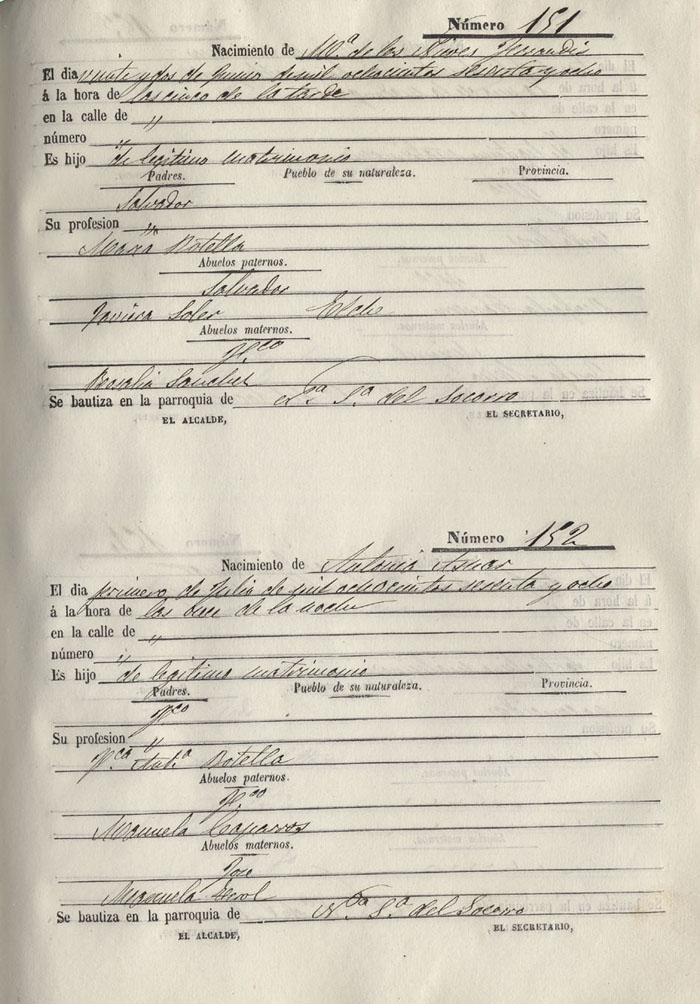 Número 151
Nacimiento de Mª de las Nieves Ferrandis
El dia veinte y dos de Junio de mil ochocientos sesenta y ocho
á la hora de las cinco de la tarde
en la calle de "
número "
Es hijo de legitimo matrimonio
Padres. Pueblo de su naturaleza. Provincia.
Salvador
Su profesion "
Maria Botella
Abuelos paternos.
Salvador
Javiera Soler Elche
Abuelos maternos.
Fco
Rosalia Sanchez
Se bautiza en la parroquia de Nª Sª del Socorro
EL ALCALDE, EL SECRETARIO,
Número 152
Nacimiento de Antonio Asnar
El dia primero de Julio de mil ochocientos sesenta y ocho
á la hora de las once de la noche
en la calle de "
número "
Es hijo de legitimo matrimonio
Padres. Pueblo de su naturaleza. Provincia.
Fco
Su profesion "
Fca Antª Botella
Abuelos paternos.
Fco
Manuela Caparros
Abuelos maternos.
Jose
Manuela
Se bautiza en la parroquia de Nª Sª del Socorro
EL ALCALDE, EL SECRETARIO,